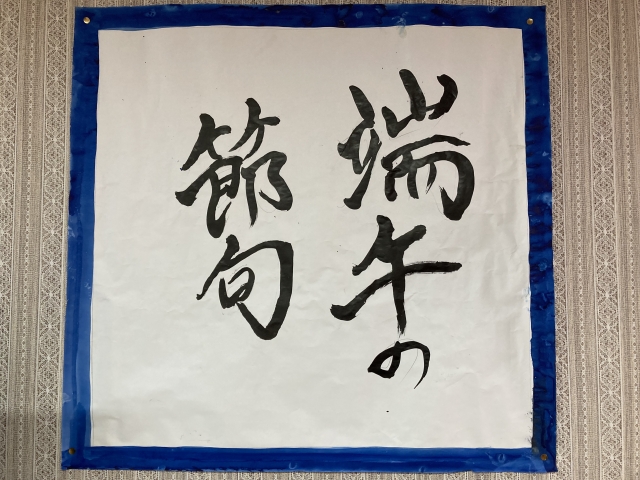 端午の
節句